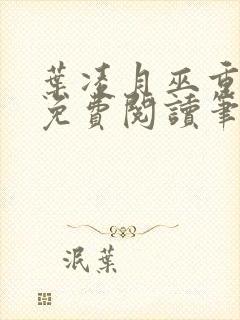 葉凌月巫重
免費閱讀筆
泯葉